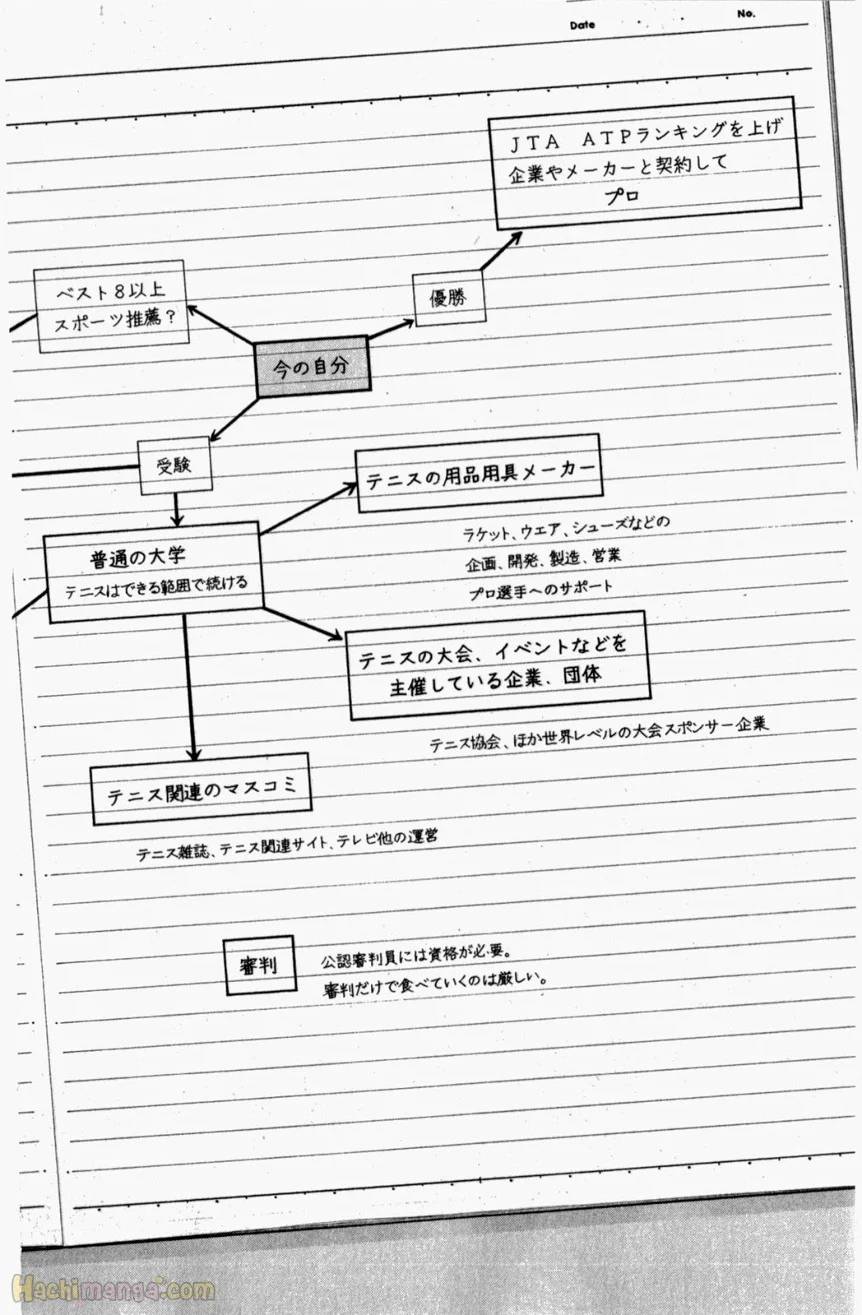 Date
No.
JTA ATPランキングを上げ
企業やメーカーと契約して
プロ
ベスト8以上
スポーツ推薦?
優勝
今の自分
受験
テニスの用品用具メーカー
ラケット、ウエア、シューズなどの
企画、開発、製造、営業
プロ選手へのサポート
普通の大学
テニスはできる範囲で続ける
テニスの大会、イベントなどを
主催している企業、団体
テニス協会、ほか世界レベルの大会スポンサー企業
テニス関連のマスコミ
テニス雑誌、テニス関連サイト、テレビ他の運営
審判
公認審判員には資格が必要。
審判だけで食べていくのは厳しい。
Hachimanga.com